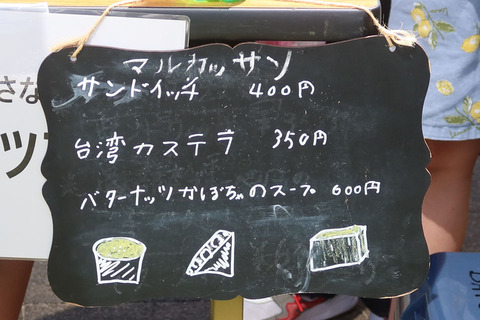 マルカッサン
サンドイッチ 400円
台湾カステラ 350円
バターナッツかぼちゃのスープ 600円
さな
ツ